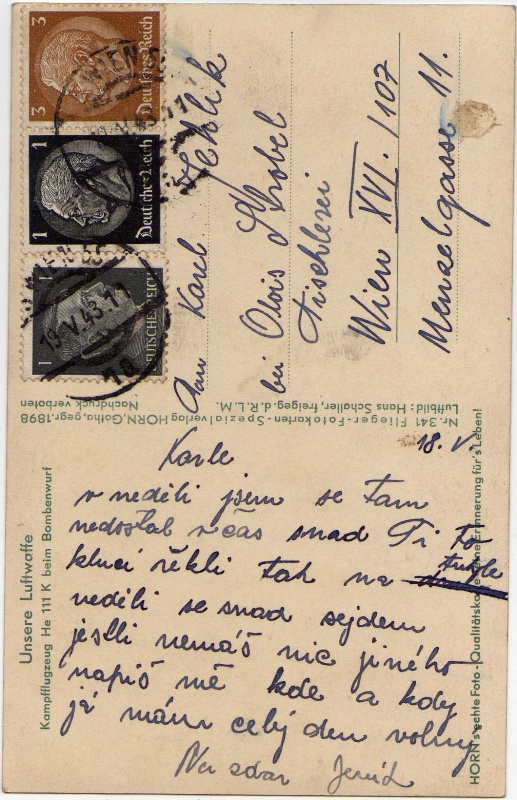 3
Deutsches Reich
3
1
Deutsches Reich
1
1
DEUTSCHES REICH
WIEN
19.V.43.11
1a
Karel
bei Olois Strobel
Tischlerei
Wien XVI. /107
Menzelgasse 11.
Nr. 341 Flieger-Fotokarten-Spezialverlag HORN, Gotha, gegr. 1898
Luftbild: Hans Schaller, freigeg. d. R.L.M. Nachdruck verboten
Unsere Luftwaffe
Kampfflugzeug He 111 K beim Bombenwurf
HORN's echte Foto-Qualitätskarte eine Erinnerung für's Leben!
18. V.
Karle
v neděli jsem se tam
nedostal včas snad Ti to
kluci řekli tak na tuhle
neděli se snad sejdem
jestli nemáš nic jiného
napiš mě kde a kdy
já mám celý den volny
Na zdar